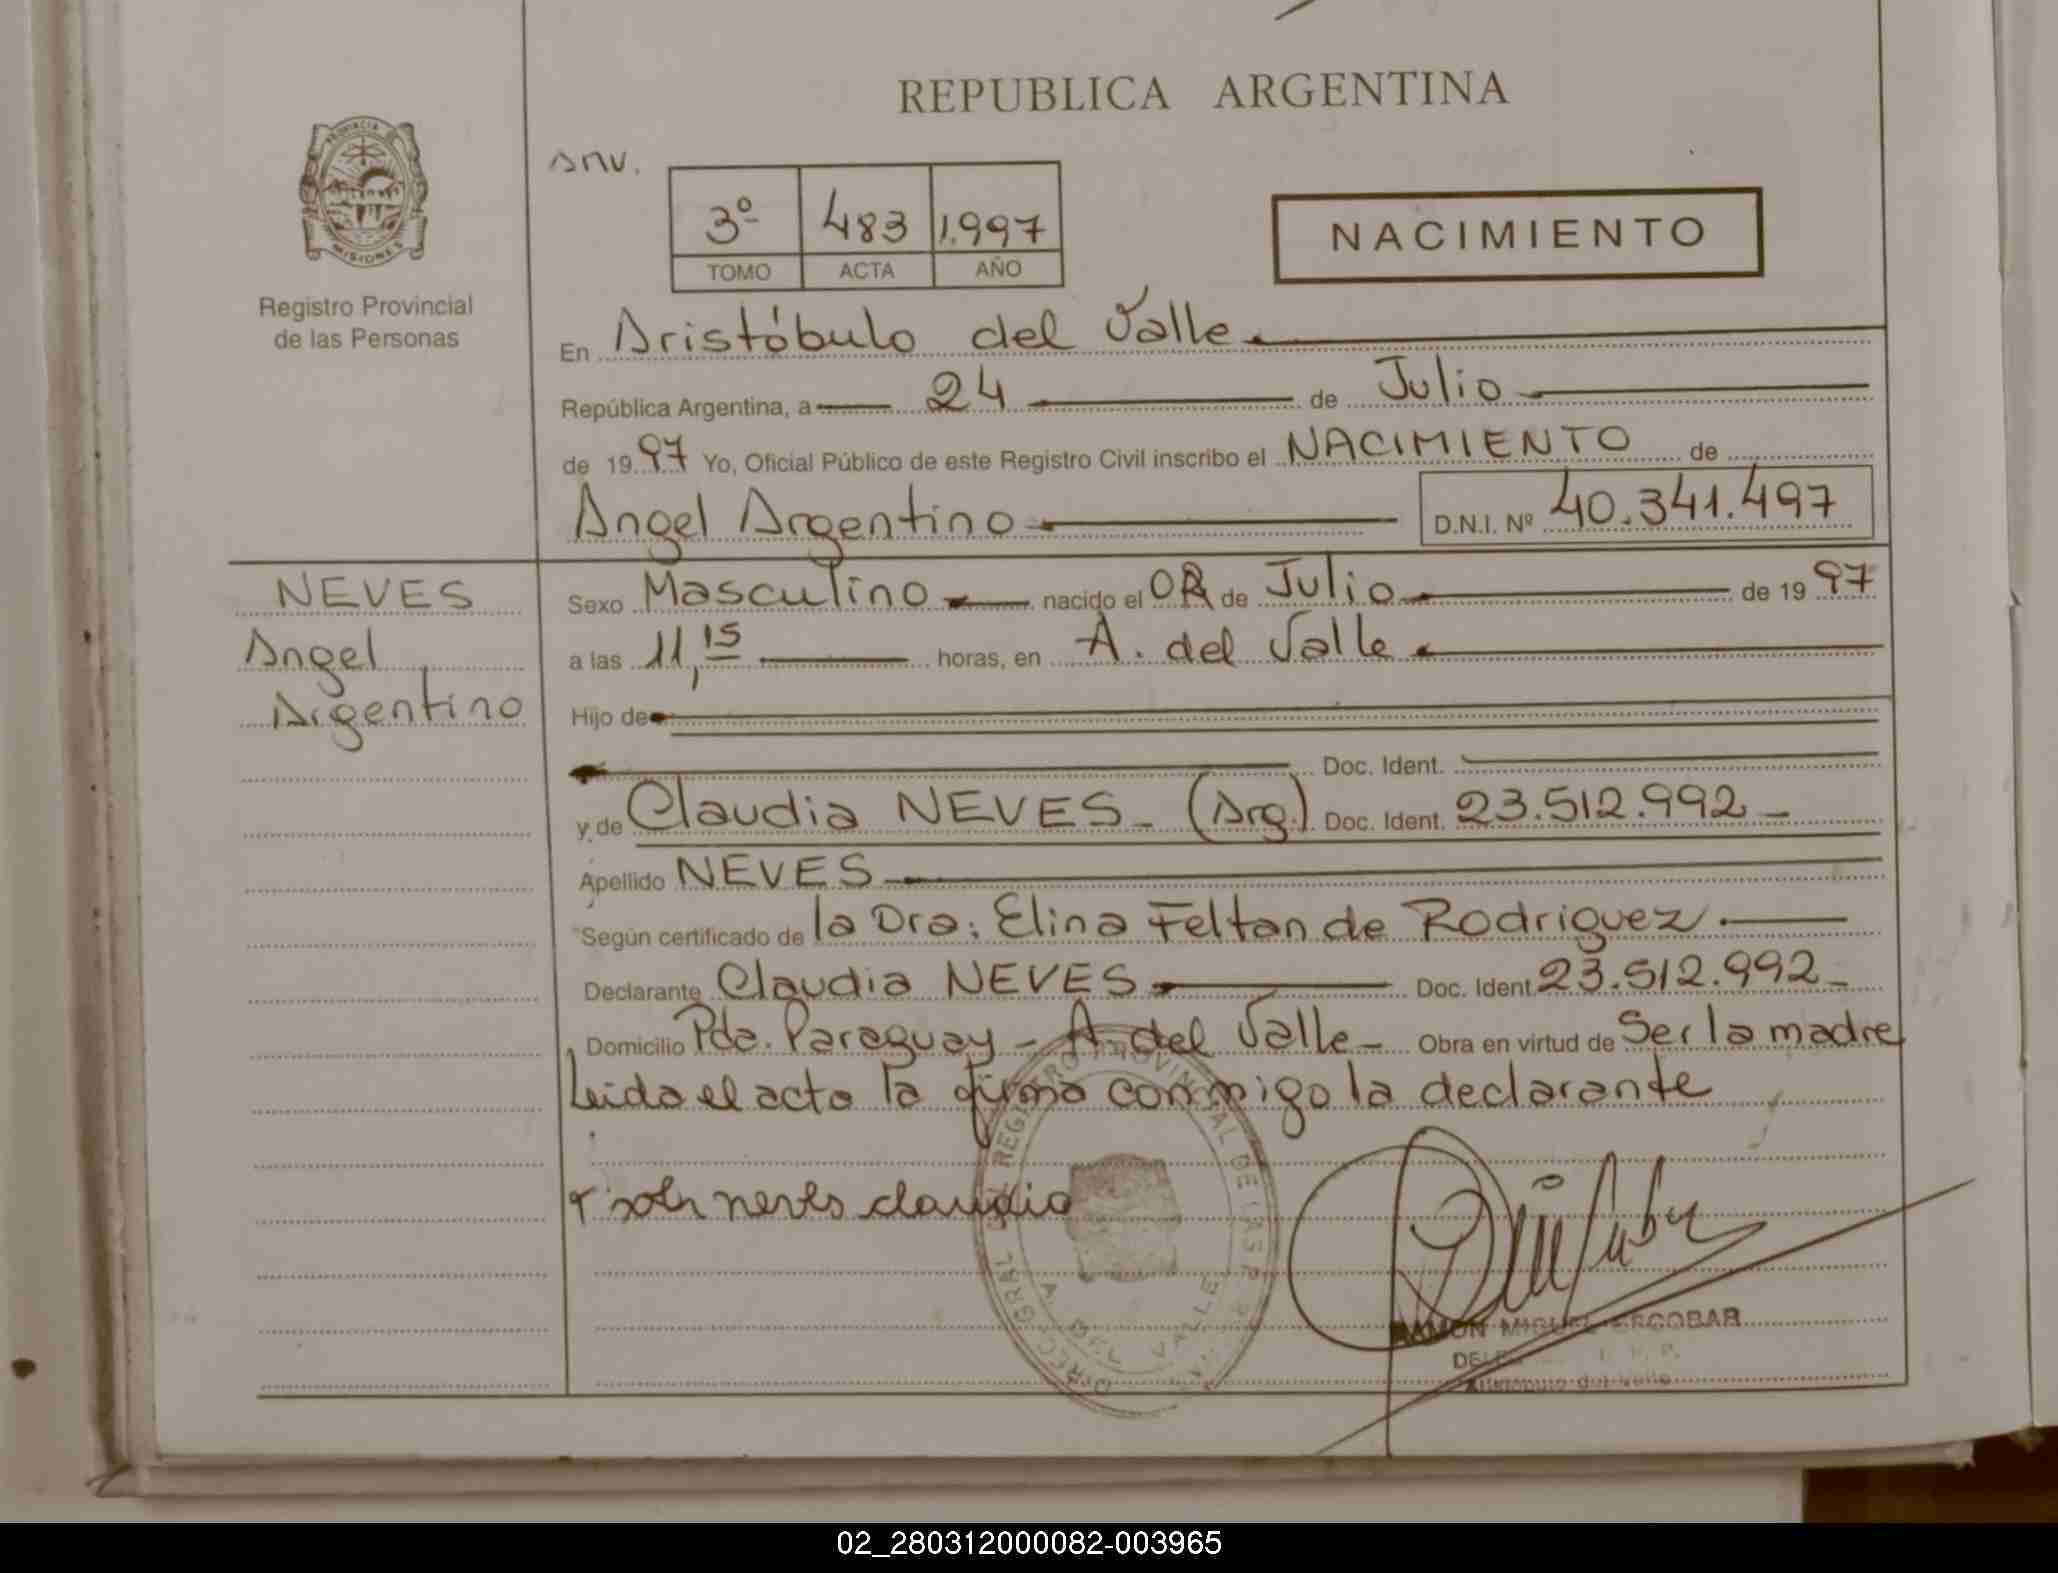 REPUBLICA ARGENTINA
PROVINCIA DE
MISIONES
Registro Provincial
de las Personas
snv.
3º 483 1.997
TOMO ACTA AÑO
NACIMIENTO
En Aristóbulo del Valle
República Argentina, a 24 de Julio
de 1997 Yo, Oficial Público de este Registro Civil inscribo el NACIMIENTO de
Angel Argentino D.N.I. Nº 40.341.497
NEVES
Angel
Argentino
Sexo Masculino nacido el de Julio de 1997
a las 11,15 horas, en A. del Valle
Hijo de
Doc. Ident.
y de Claudia NEVES - (Arg.) Doc. Ident. 23.512.992 -
Apellido NEVES
Según certificado de la Dra: Elina Feltan de Rodriguez
Declarante Claudia NEVES Doc. Ident. 23.512.992 -
Domicilio Pda. Paraguay - A. del Valle - Obra en virtud de Ser la madre
Leida el acta la firma conmigo la declarante
neves claudia
REGISTRO PROVINCIAL DE LAS
A. DEL VALLE
RAMON MIGUEL ESCOBAR
Aristóbulo del Valle
02_280312000082-003965